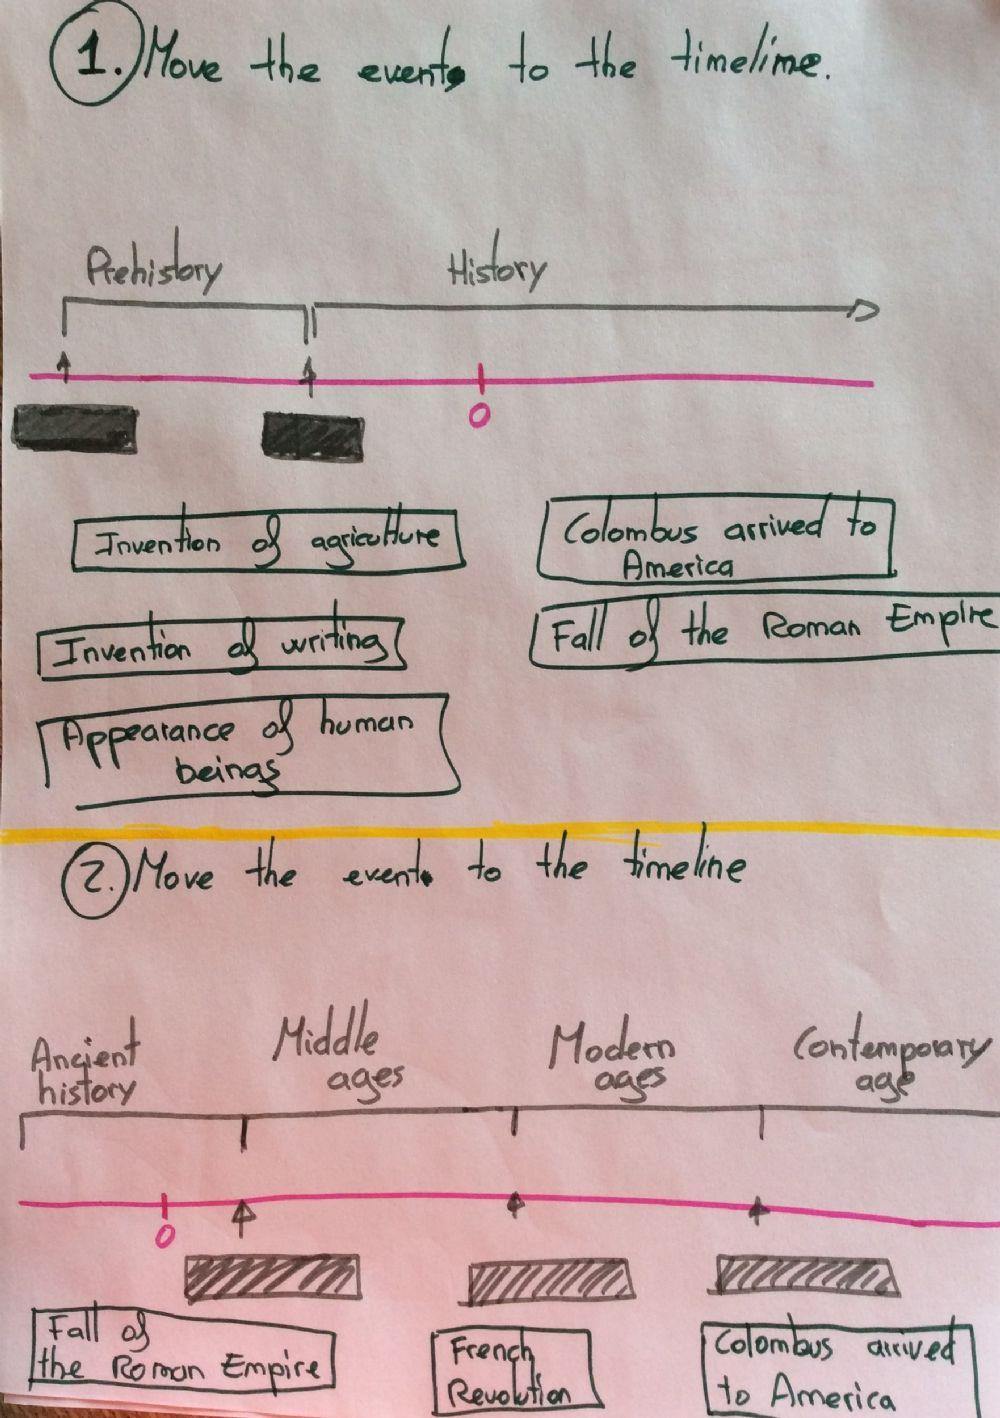 1. Move the events to the timelime.
Prehistory
History
0
Invention of agriculture
Colombus arrived to
America
Invention of writing
Fall of the Roman Empire
Appearance of human
beings
2. Move the events to the timeline
Ancient
history
Middle
ages
Modern
ages
Contemporary
age
0
Fall of
the Roman Empire
French
Revolution
Colombus arrived
to America